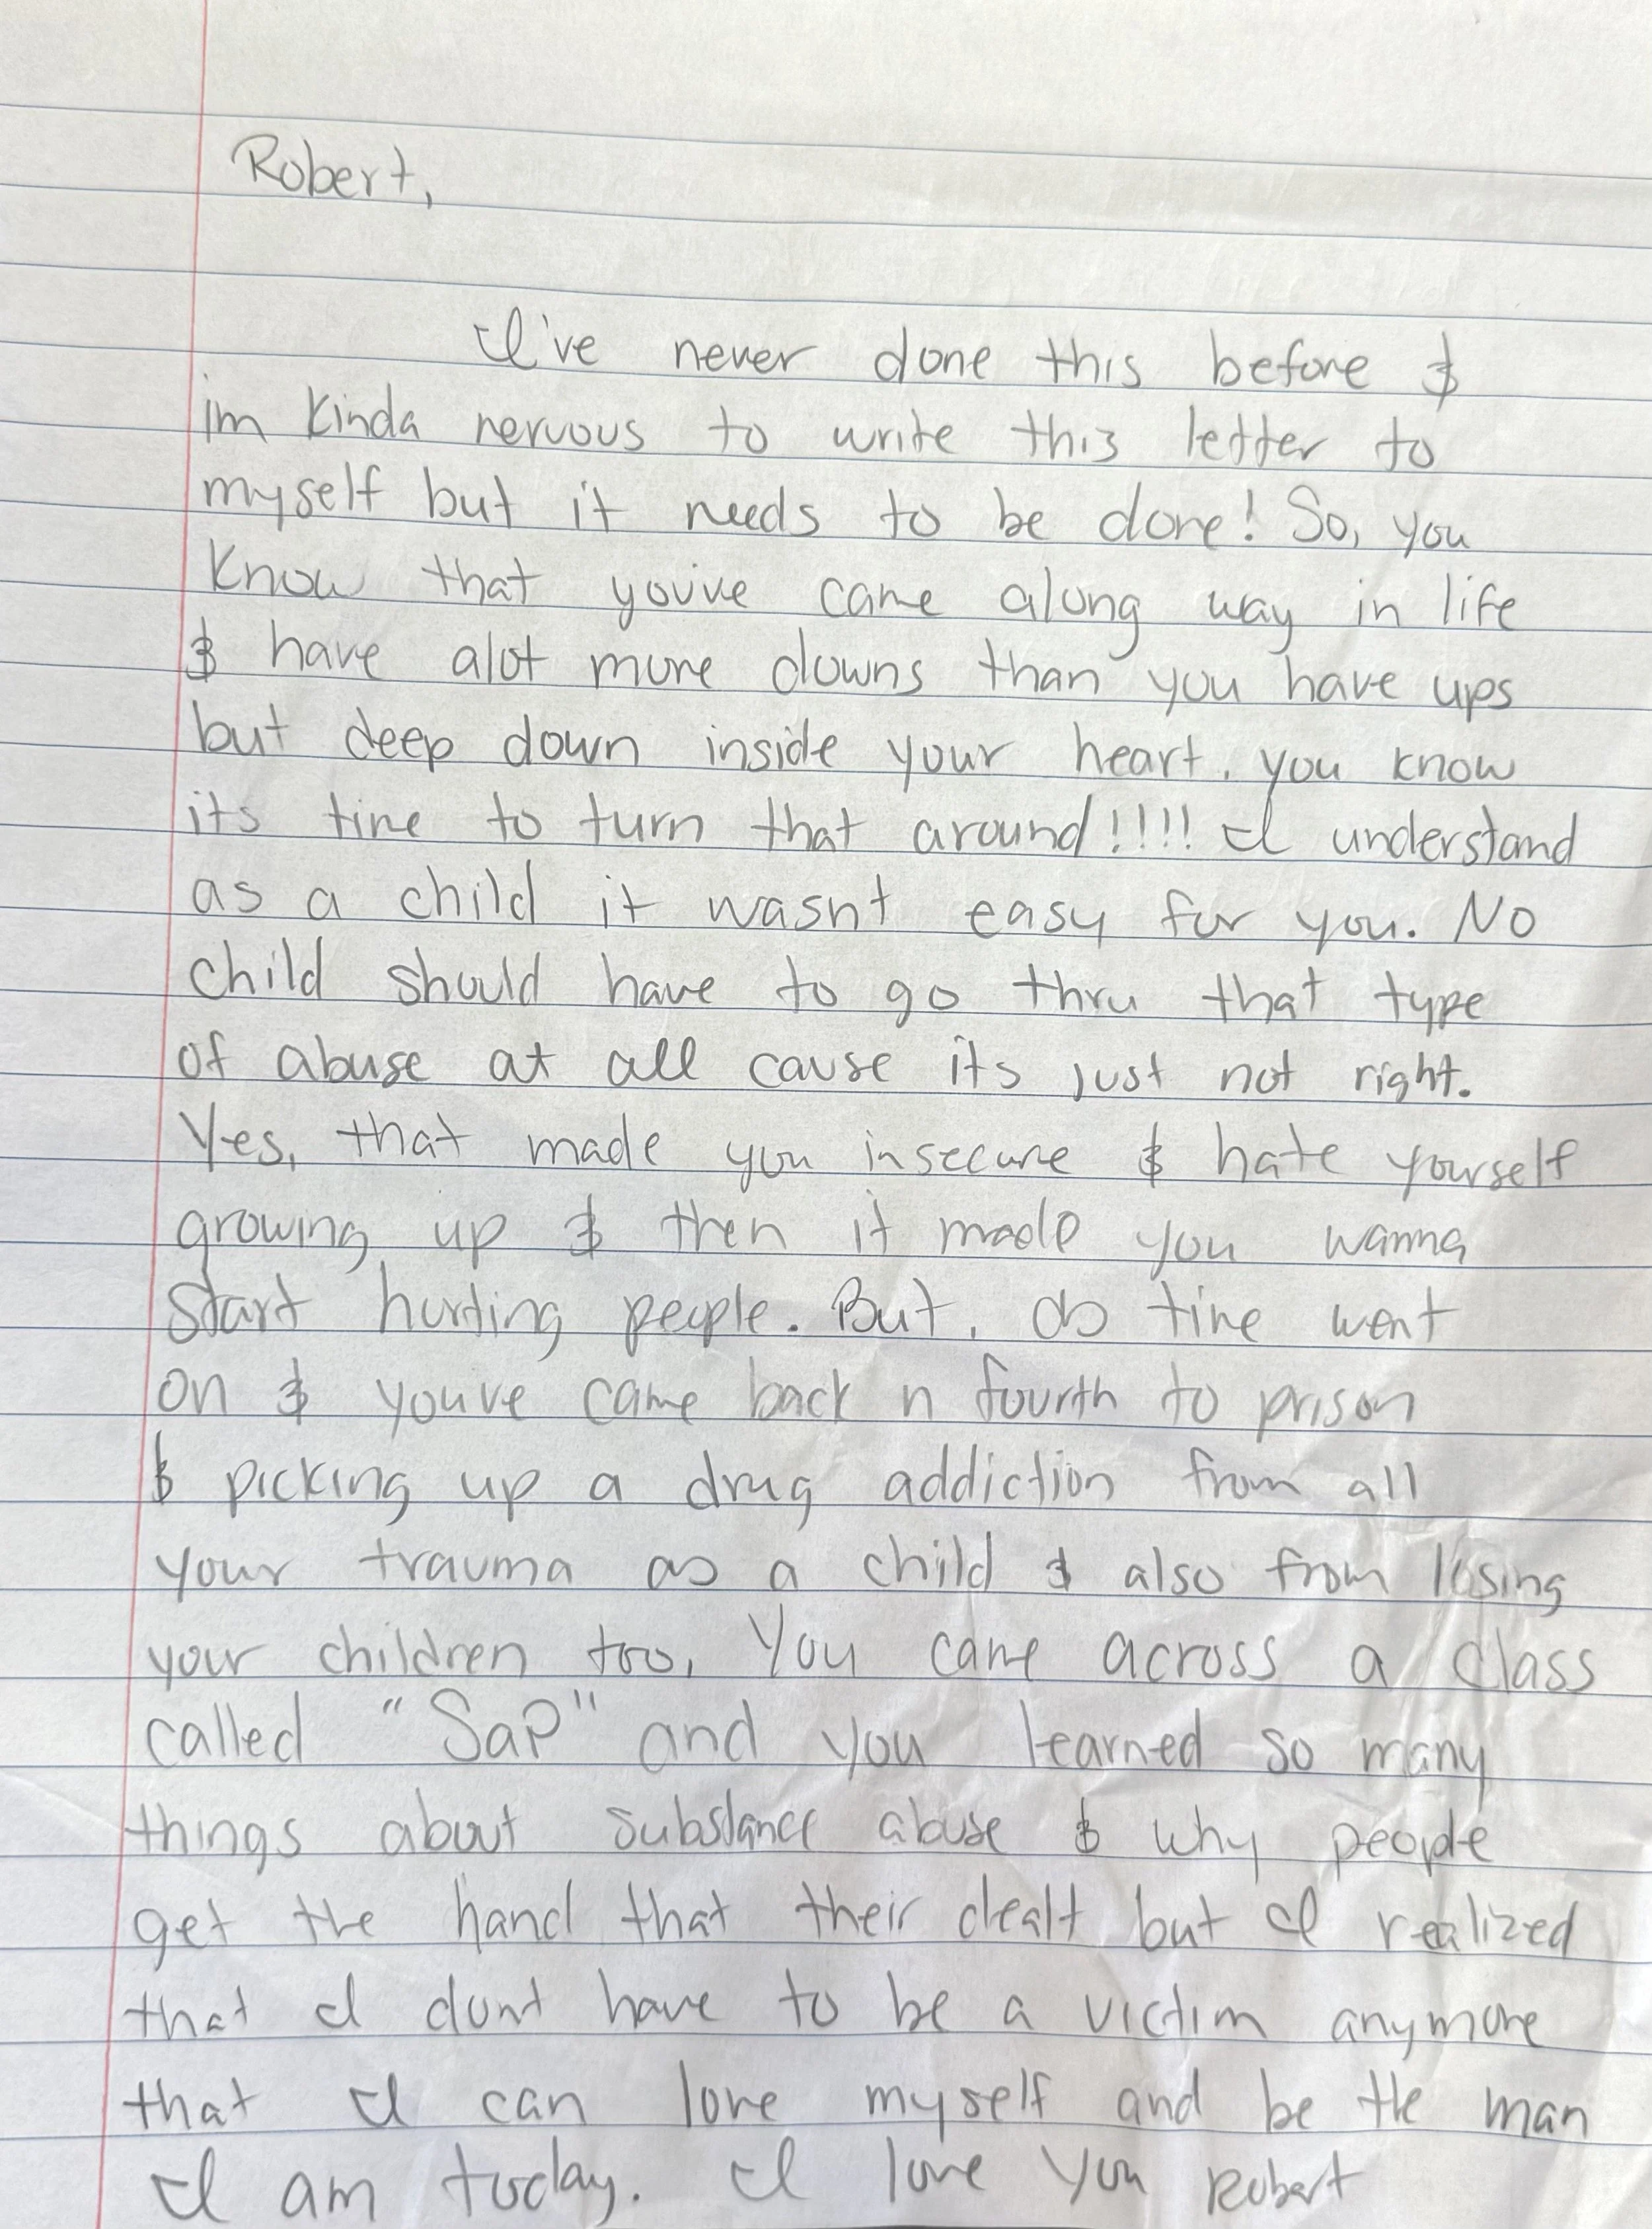 Robert,
I've never done this before &
im kinda nervous to write this letter to
myself but it needs to be done! So, you
know that youive came along way in life
& have alot more downs than you have ups
but deep down inside your heart, you know
its time to turn that around!!!! I understand
as a child it wasnt easy for you. No
child should have to go thru that type
of abuse at all cause its just not right.
Yes, that made you insecure & hate yourself
growing up & then it made you wanna
start hurting people. But, as time went
on & youve came back n fourth to prison
& picking up a drug addiction from all
your trauma as a child & also from losing
your children too, You came across a class
called "SaP" and you learned so many
things about substance abuse & why people
get the hand that their dealt but I realized
that I dont have to be a victim anymore
that I can love myself and be the man
I am today. I love you Robert